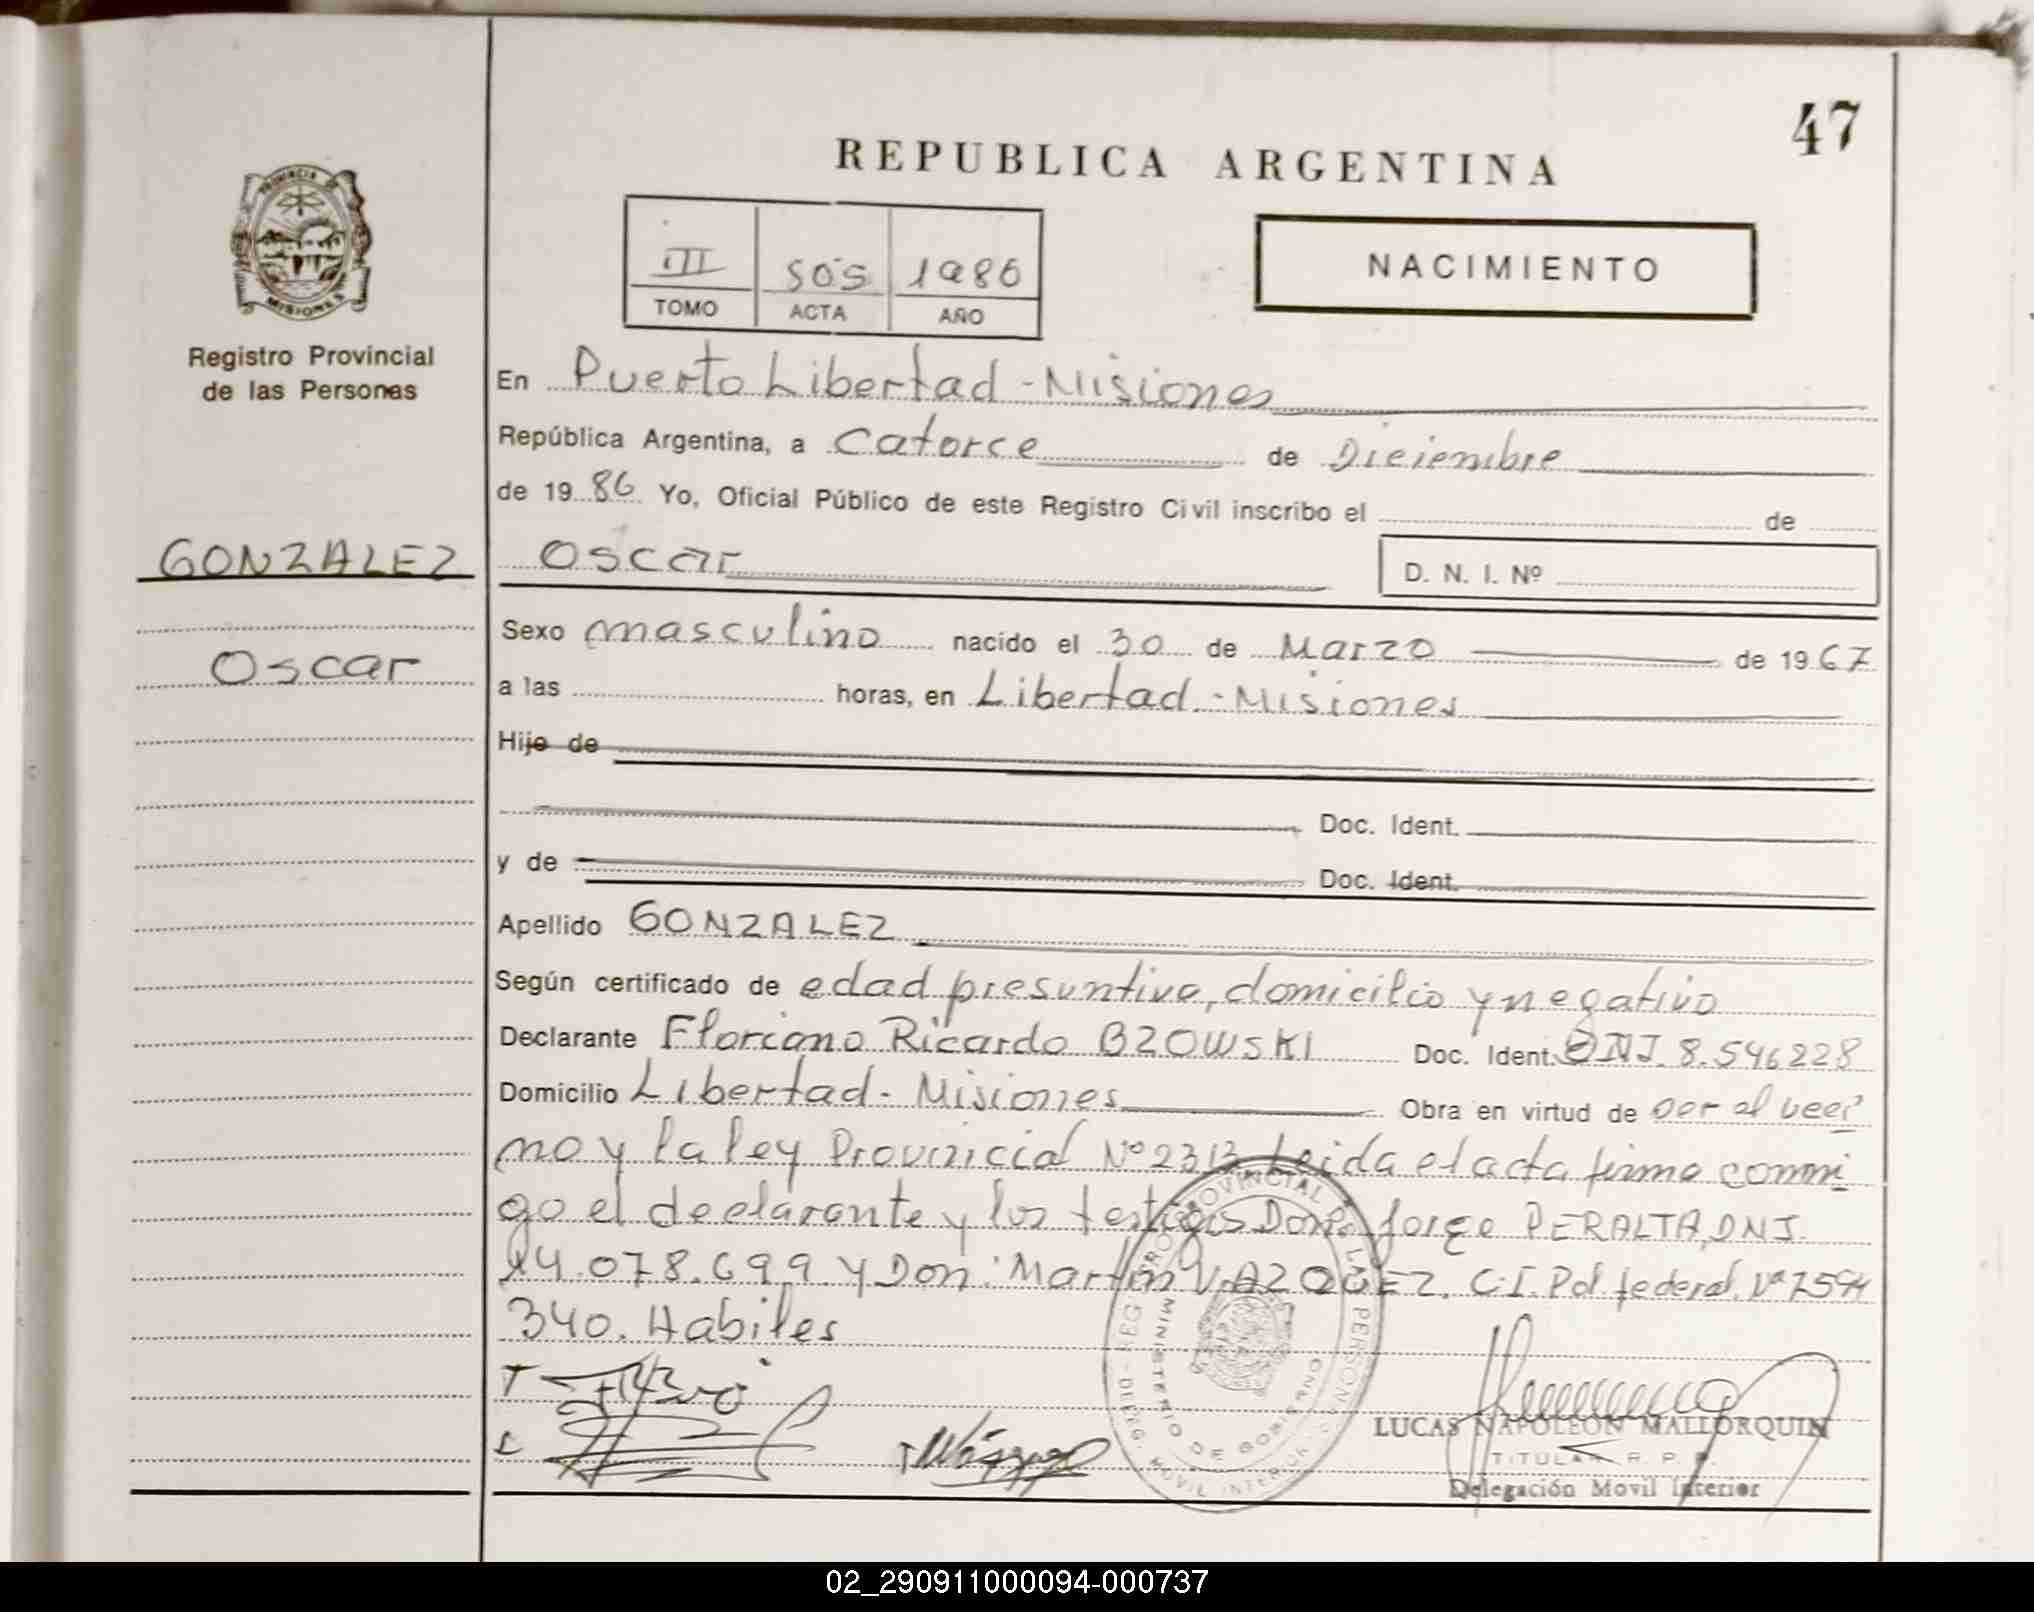 47
REPUBLICA ARGENTINA
PROVINCIA DE
MISIONES
Registro Provincial
de las Personas
III 505 1986
TOMO ACTA AÑO
NACIMIENTO
En Puerto Libertad - Misiones
República Argentina, a catorce de Diciembre
de 19 86 Yo, Oficial Público de este Registro Civil inscribo el de
GONZALEZ
Oscar
D. N. I. Nº
Sexo masculino nacido el 30 de Marzo de 19 67
Oscar
a las horas, en Libertad - Misiones
Hijo de
Doc. Ident.
y de Doc. Ident.
Apellido GONZALEZ
Según certificado de edad presuntiva, domicilio y negativo
Declarante Floriano Ricardo BZOWSKI Doc. Ident. DNI. 8.546228
Domicilio Libertad - Misiones Obra en virtud de ser el veci
no y la ley Provinicial Nº 2313 Leida el acta firma conmi
go el declarante y los testigos Don Jorge PERALTA, DNI.
14.078.699 y Don: Martin VAZQUEZ. C.I. Pol. federal. Nº 7594
340. Habiles
LUCAS NAPOLEON MALLORQUIN
TITULAR R. P.
Delegación Movil Interior
02_290911000094-000737